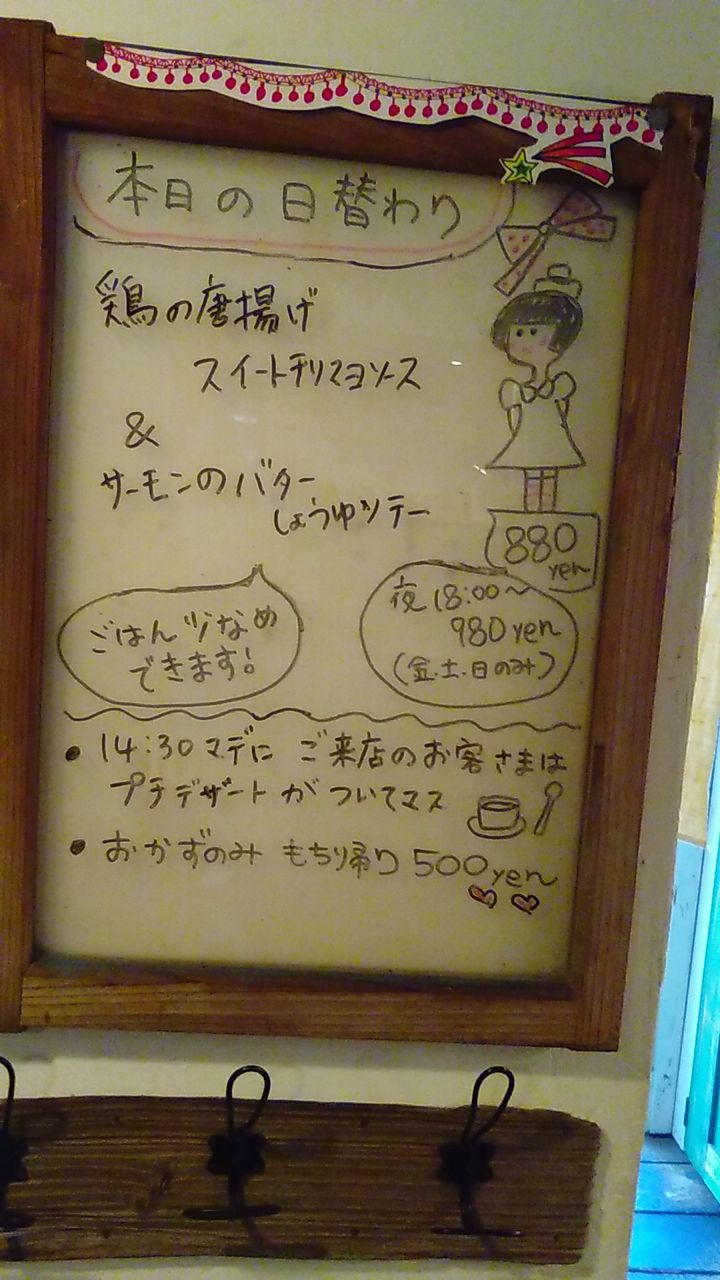 本日の日替わり
鶏の唐揚げ
スイートチリマヨソース
&
サーモンのバター
しょうゆソテー
880
yen
ごはん少なめ
できます!
夜 18:00〜
980yen
(金.土.日のみ)
• 14:30マデに ご来店のお客さまは
プチデザートがついてマス
• おかずのみ もちり帰り 500yen